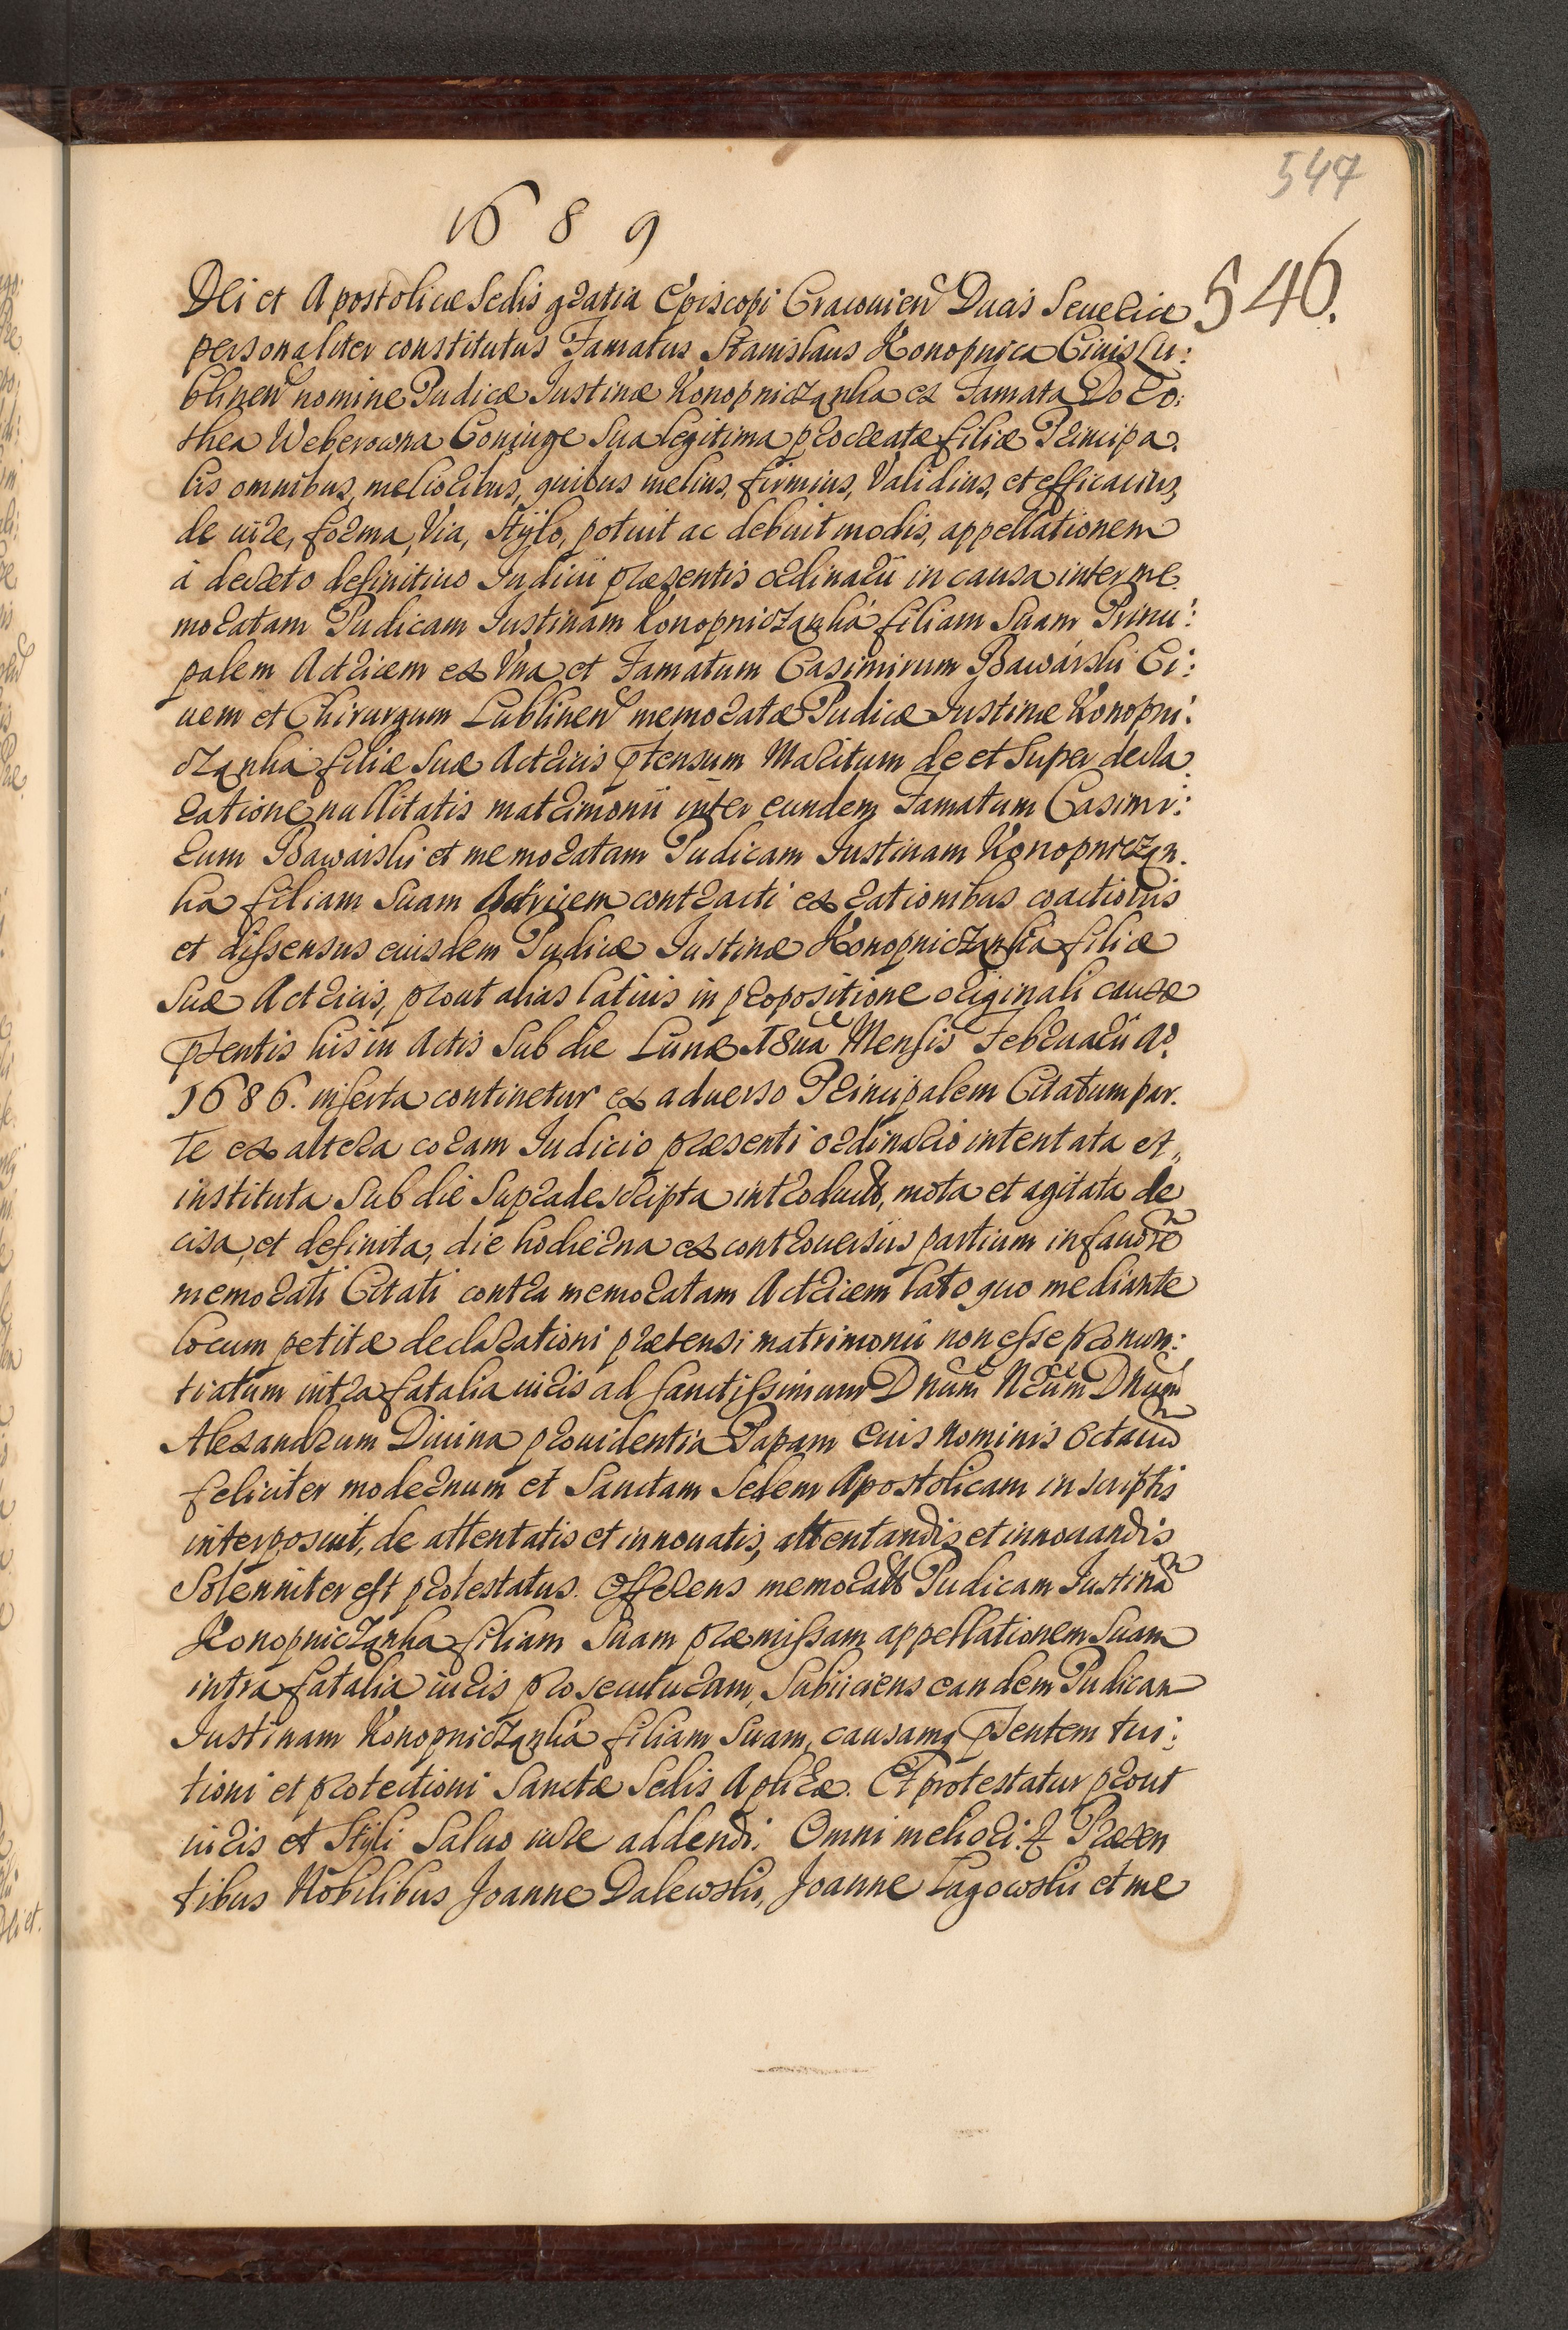 547
1689
546.
Dei et Apostolicæ Sedis gratia Episcopi Cracouien Ducis Seueriæ
personaliter constitutus Famatus Stanislaus Konopnica Ciuis Lu:
blinen nomine Pudicæ Iustinæ Konopniczanka ex Famata Doro:
thea Weberowna Coniuge Sua legitima procreatæ filiæ Principa.
lis omnibus, melioribus, quibus melius, firmius, Validius, et efficacius,
de iure, forma, Via, Stÿlo, potuit ac debuit modis, appellationem
à decreto definitiuo Iudicii præsentis ordinarii in causa inter me.
moratam Pudicam Iustinam Konopniczanka filiam Suam Princi:
palem Actricem ex Vna et Famatum Casimirum Bawarski Ci:
uem et Chirurgum Lublinen memoratæ Pudicæ Iustinæ Konopni:
czanka filiæ Suæ Actricis ptensum Maritum de et Super decla
ratione nullitatis matrimonii inter eundem Famatum Casimi:
rum Bawarski et memoratam Pudicam Iustinam Konopniczan.
ka filiam Suam Actricem contracti ex rationibus coactionis
et dissensus eiusdem Pudicæ Iustinæ Konopniczanka filiæ
Suæ Actricis, prout alias latius in propositione originali causæ
psentis his in Actis Sub die Lunæ 18ua Mensis Februarii Ao.
1686. inserta continetur ex aduerso Principalem Citatum par.
te ex altera coram Iudicio præsenti ordinario intentata et,,
instituta Sub die Supradescripta introducta, mota et agitata de
cisa, et definita, die hodierna ex controuersiis partium in fauore
memorati Citati contra memoratam Actricem lato quo mediante
locum petitæ declarationi prætensi matrimonii non esse pronun:
tiatum intra fatalia iuris ad Sanctissimum Dnum Nrum Dnum
Alexandrum Diuina prouidentia Papam Eius Nominis Octauu
feliciter modernum et Sanctam Sedem Apostolicam in scriptis
interposuit, de attentatis et innouatis, attentandis et innouandis
Solenniter est protestatus. Offerens memorata Pudicam Iustina
Konopniczanka filiam Suam præmissam appellationem Suam
intra fatalia iuris prosecuturam, Subiiciens eandem Pudicam
Iustinam Konopniczanka filiam Suam, causamq psentem tui:
tioni et protectioni Sanctæ Sedis Aplicæ. Et protestatur prout
iuris et Stÿli Saluo iure addendi. Omni meliori. Præsen
tibus Nobilibus Joanne Dalewski, Joanne Lagowski et me